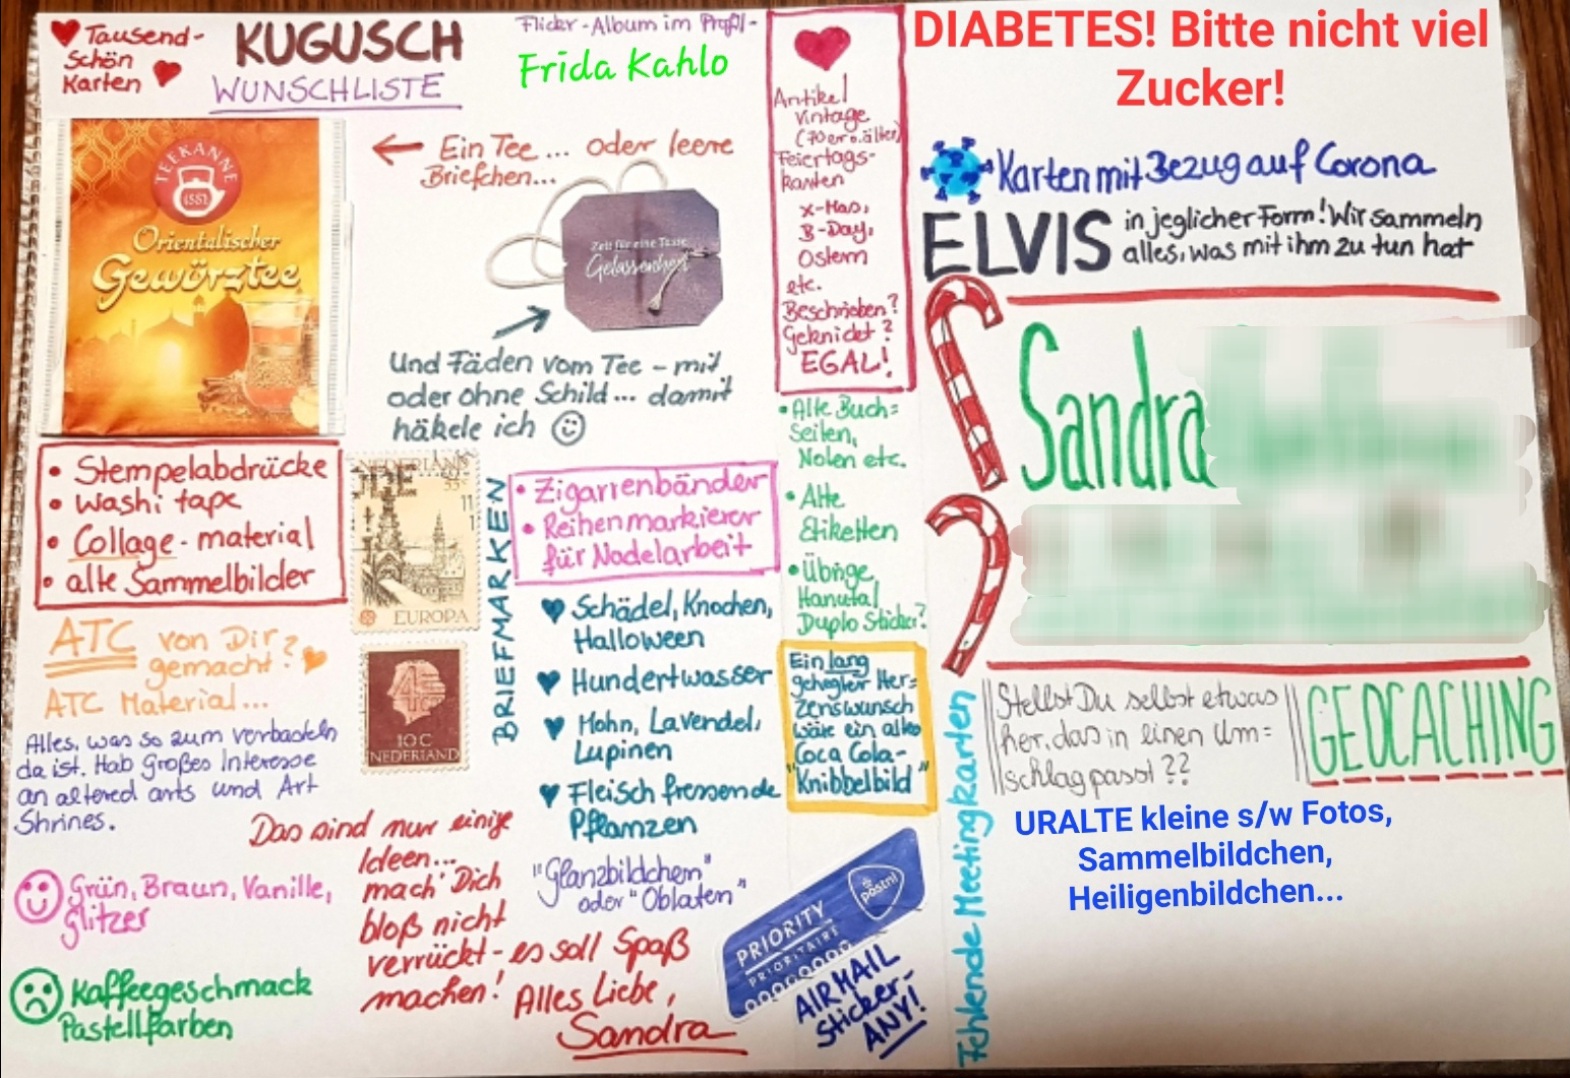 Tausend-
Schön
Karten
KUGUSCH
WUNSCHLISTE
Flickr-Album im Profil-
Frida Kahlo
TEEKANNE
1882
Orientalischer
Gewürztee
Ein Tee... oder leere
Briefchen...
Zeit für eine Tasse
Gelassenheit
Und Fäden vom Tee - mit
oder ohne Schild... damit
häkele ich
• Stempelabdrücke
• washi tape
• Collage-material
• alte Sammelbilder
NEDERLAND
55c
EUROPA
10 C
NEDERLAND
BRIEFMARKEN
• Zigarrenbänder
• Reihenmarkierer
für Nadelarbeit
ATC von Dir
gemacht?
ATC Material...
Alles, was so zum verbasteln
da ist. Hab großes Interesse
an altered arts und Art
Shrines.
Schädel, Knochen,
Halloween
Hundertwasser
Mohn, Lavendel,
Lupinen
Fleisch fressende
Pflanzen
"Glanzbildchen"
oder "Oblaten"
Grün, Braun, Vanille,
Glitzer
Kaffeegeschmack
Pastellfarben
Das sind nur einige
Ideen...
mach' Dich
bloß nicht
verrückt - es soll Spaß
machen! Alles Liebe,
Sandra
Antikel
vintage
(70er o. älter)
Feiertags-
karten
X-Mas,
B-Day,
Ostern
etc.
Beschrieben?
Geknickt?
EGAL!
• Alte Buch=
Seiten,
Noten etc.
• Alte
Etiketten
• Übrige
Hanuta/
Duplo Sticker?
Ein lang
gehegter Her=
zenswunsch
wäre ein altes
Coca Cola-
"Knibbelbild"
PRIORITY
PRIORITAIRE
postnl
AIRMAIL
Sticker-
ANY!
DIABETES! Bitte nicht viel
Zucker!
Karten mit Bezug auf Corona
ELVIS in jeglicher Form! Wir sammeln
alles, was mit ihm zu tun hat
Sandra
Fehlende Meetingkarten
Stellst Du selbst etwas
her, das in einen Um=
schlag passt??
GEOCACHING
URALTE kleine s/w Fotos,
Sammelbildchen,
Heiligenbildchen...